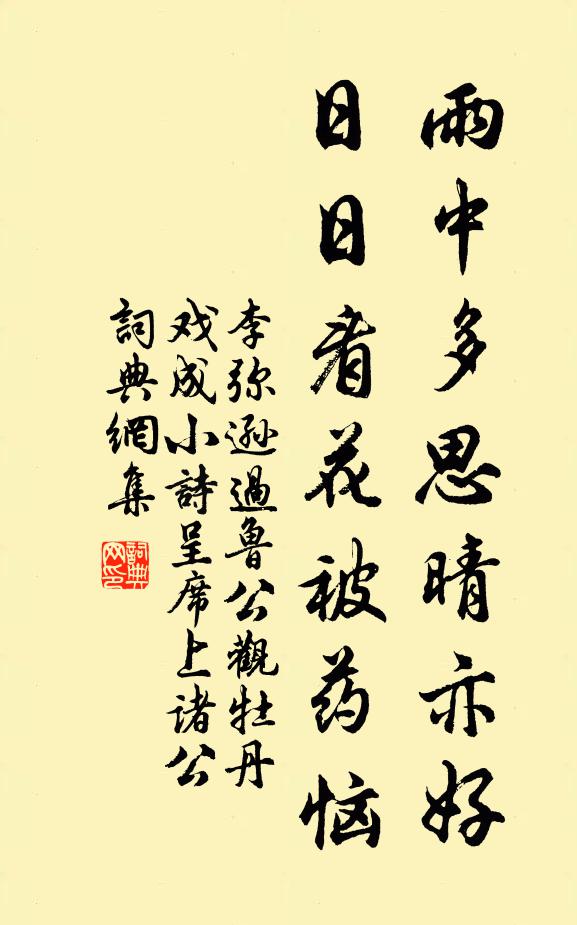 雨中多思晴亦好
日日看花被药恼
李弥逊過魯公觀牡丹
戏成小詩呈席上诸公
詞典網集
詞典网印